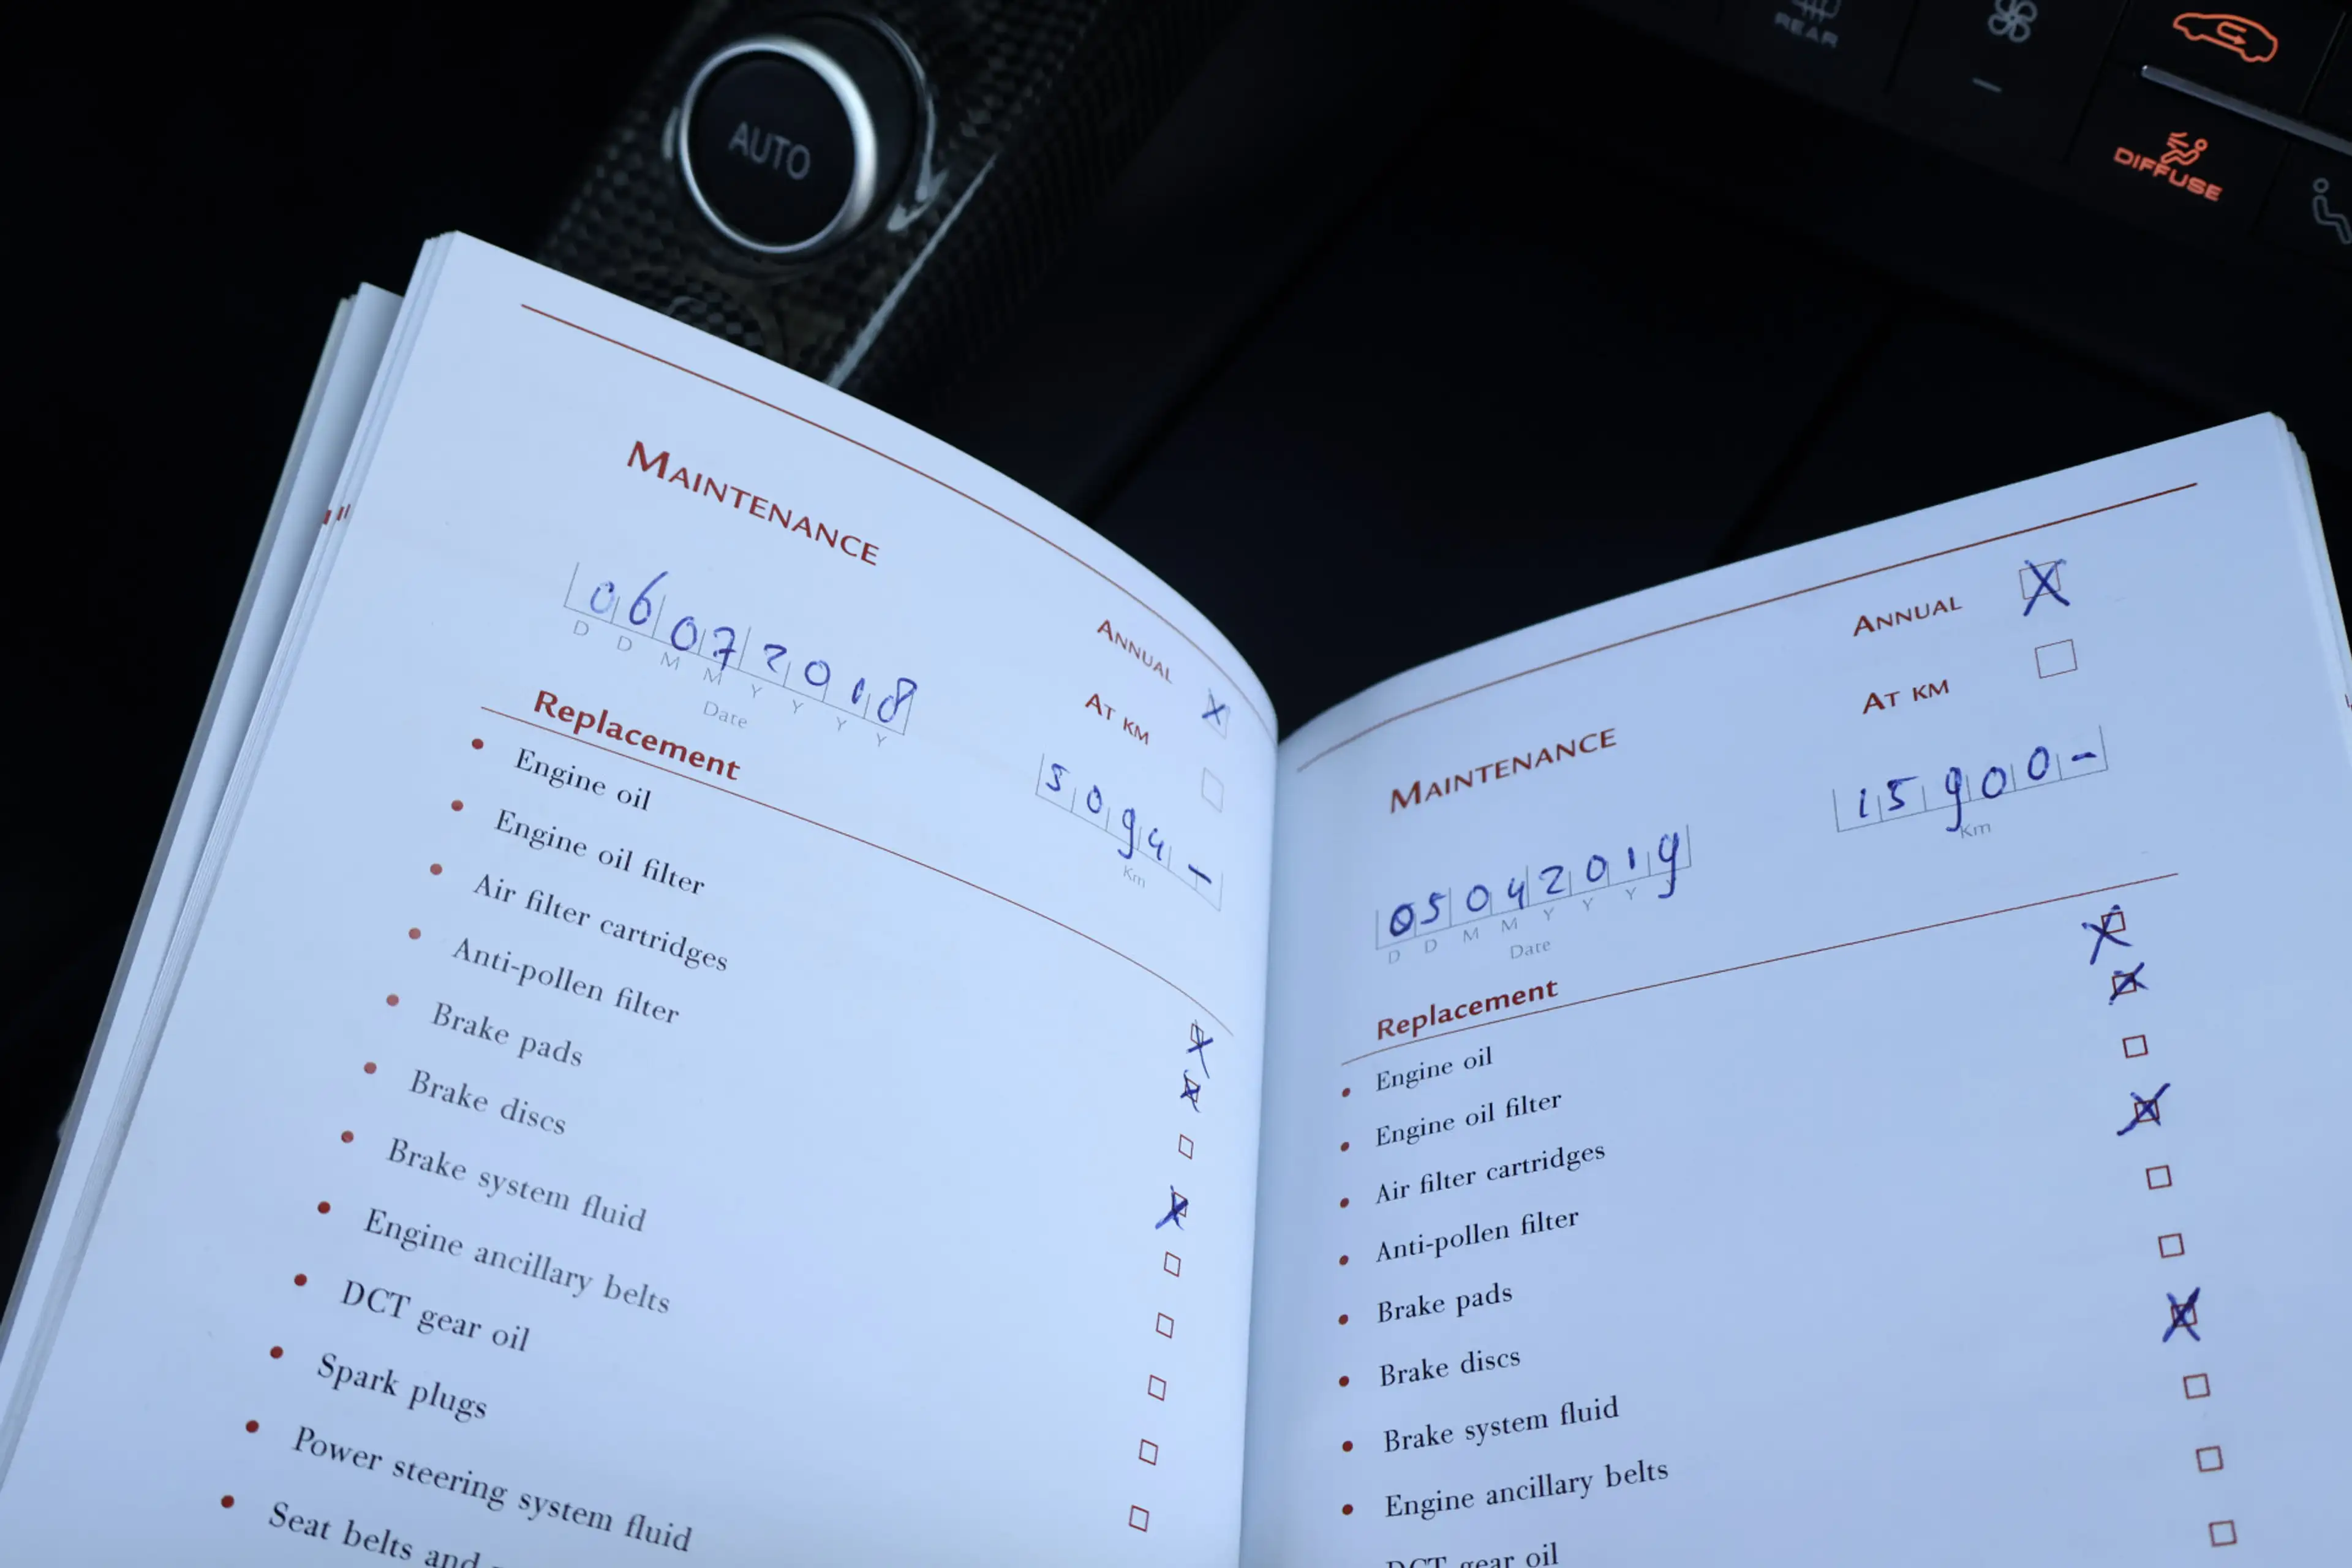 AUTO
REAR
DIFFUSE
MAINTENANCE
06072018
D D M M Y Y Y Y
Date
ANNUAL X
AT KM
5094-
Km
Replacement
• Engine oil X
• Engine oil filter X
• Air filter cartridges
• Anti-pollen filter X
• Brake pads
• Brake discs
• Brake system fluid
• Engine ancillary belts
• DCT gear oil
• Spark plugs
• Power steering system fluid
• Seat belts and
ANNUAL X
AT KM
15900-
Km
MAINTENANCE
05042019
D D M M Y Y Y
Date
Replacement
• Engine oil X
• Engine oil filter X
• Air filter cartridges
• Anti-pollen filter X
• Brake pads
• Brake discs
• Brake system fluid X
• Engine ancillary belts
DCT gear oil